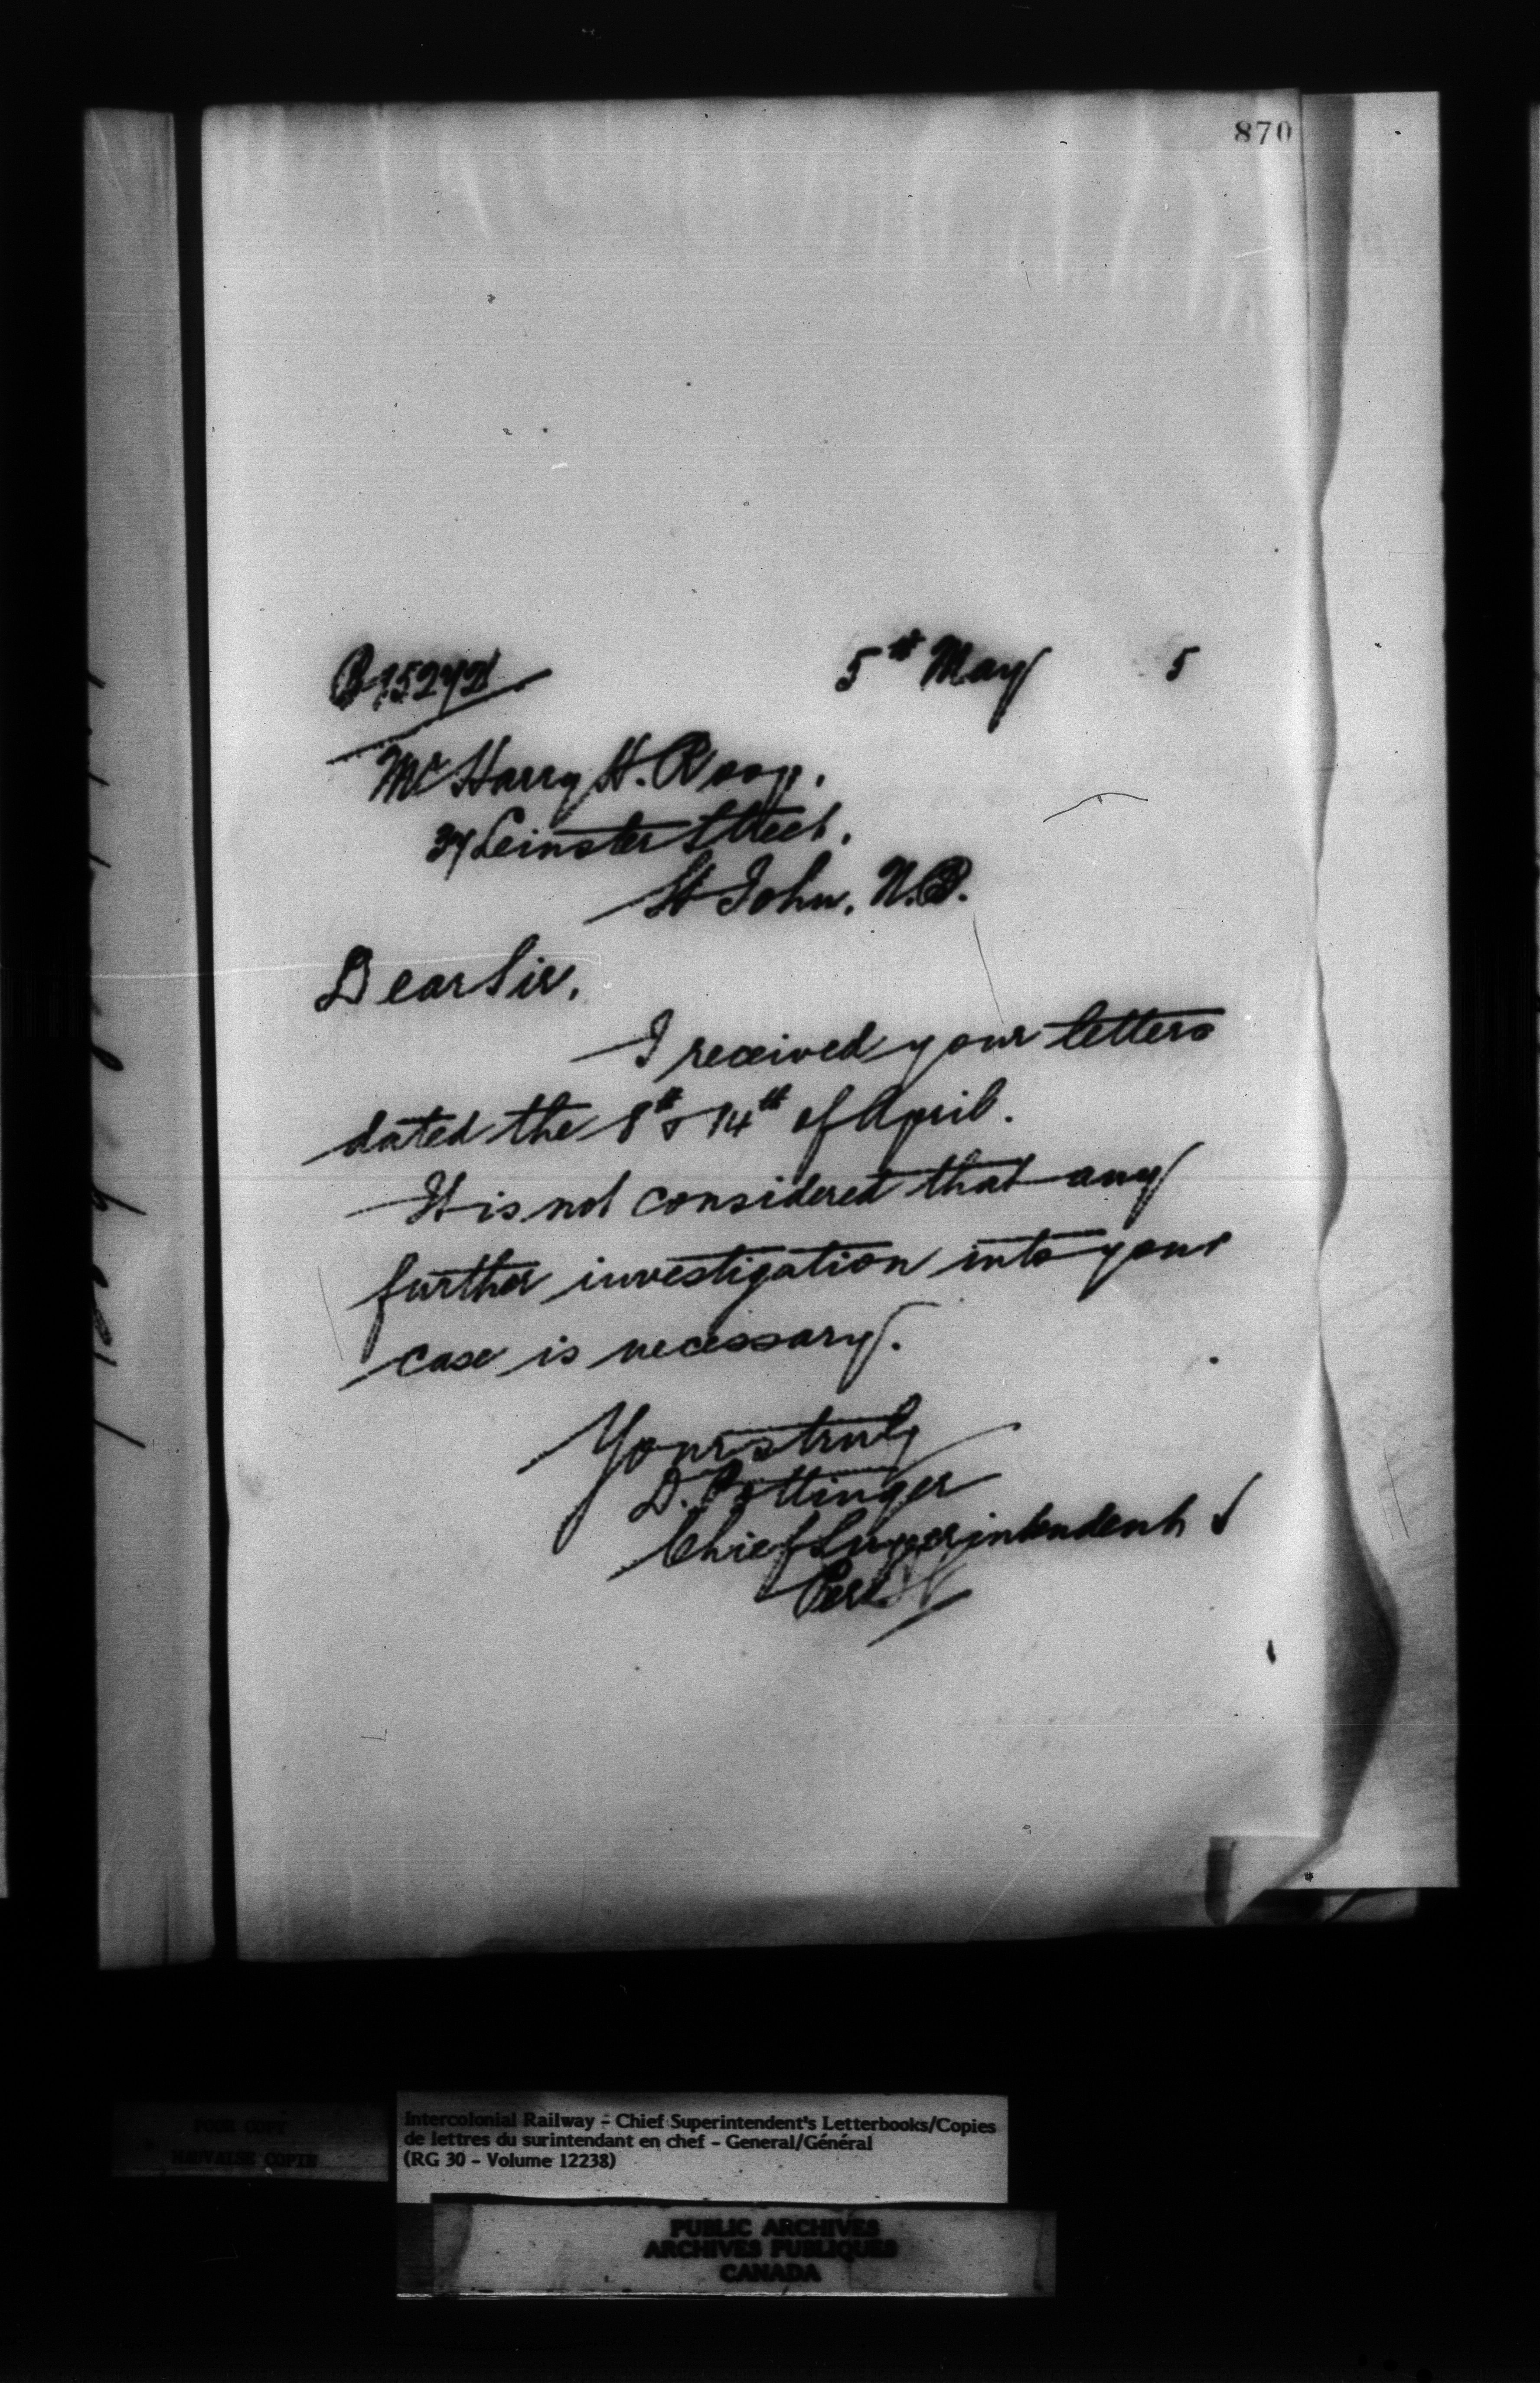 870
5th May 5
Mr Harry H. Roop.
37 Leinster Street.
St John. N.B.
Dear Sir,
I received your letters
dated the 8th & 14th of April.
It is not considered that any
further investigation into your
case is necessary.
Yours truly
D. Pottinger
Chief Superintendent
Per
POOR COPY
MAUVAISE COPIE
Intercolonial Railway - Chief Superintendent's Letterbooks/Copies
de lettres du surintendant en chef - General/Général
(RG 30 - Volume 12238)
PUBLIC ARCHIVES
ARCHIVES PUBLIQUES
CANADA